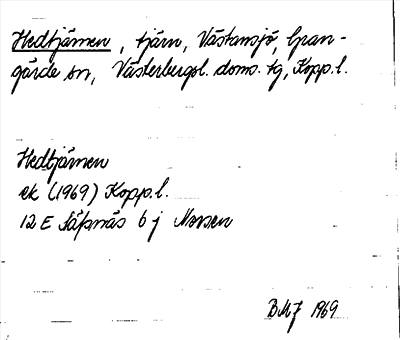 Hedtjärnen, tjärn, Västansjö, Gran-
gärde sn, Västerbergsl. doms. tg, Kopp.l.
Hedtjärnen
ek (1969) Kopp.l.
12 E Säfsnäs 6 j Norsen
BMJ 1969